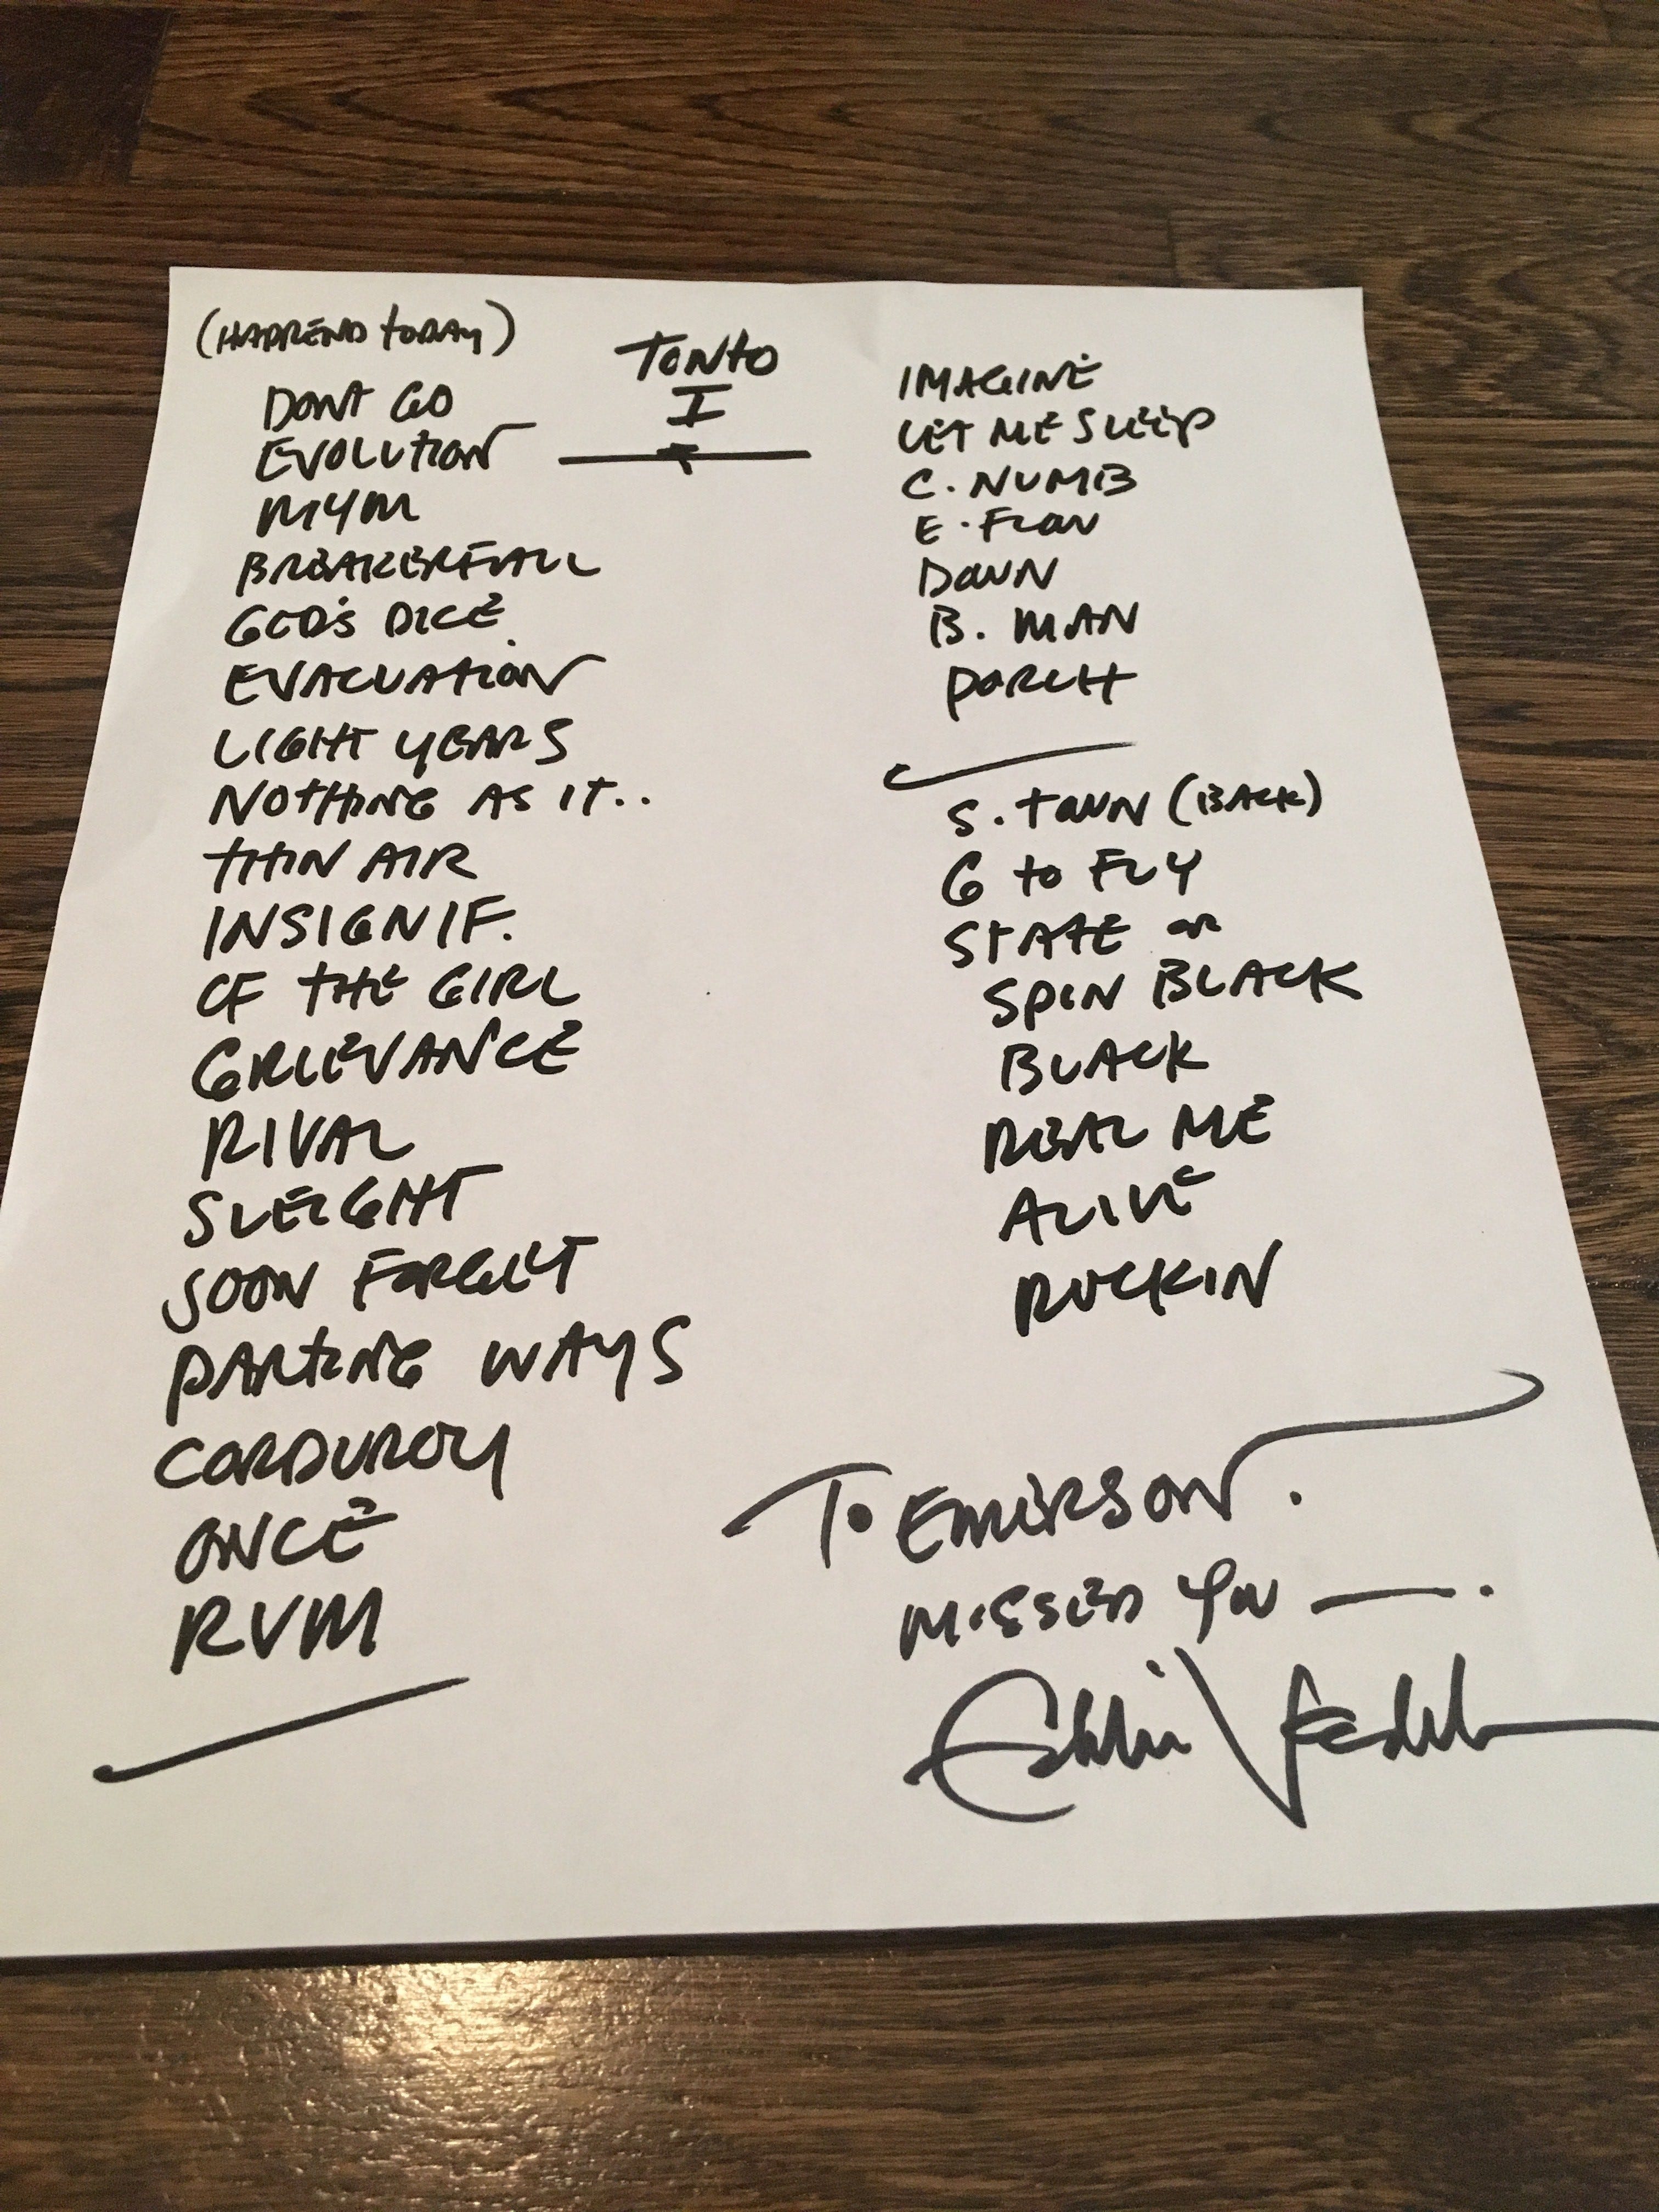 (HAPPEND TODAY)
DONT GO
EVOLUTION
MYM
BREAKERFALL
GOD'S DICE
EVACUATION
LIGHT YEARS
NOTHING AS IT..
THIN AIR
INSIGNIF.
OF THE GIRL
GRIEVANCE
RIVAL
SLEIGHT
SOON FORGET
PARTING WAYS
CORDUROY
ONCE
RVM
TONTO
I
IMAGINE
LET ME SLEEP
C. NUMB
E. FLOW
DAWN
B. MAN
PORCH
S. TOWN (BACK)
G TO FLY
STATE OR
SPIN BLACK
BLACK
REAL ME
ALIVE
ROCKIN
TO EMERSON.
MISSED YOU —.
Eddie Vedder